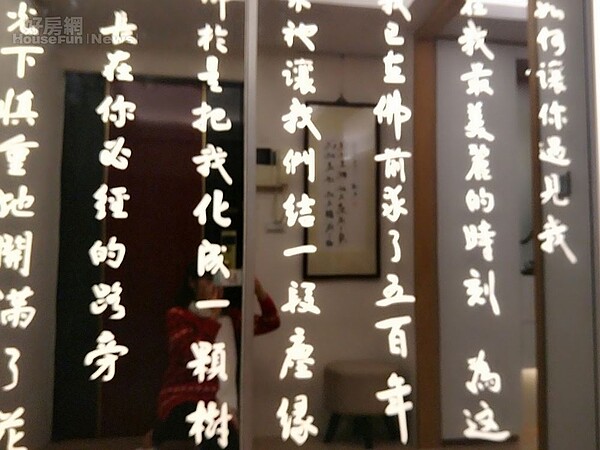 如何讓你遇見我
在我最美麗的時刻 為這
我已在佛前求了五百年
求祂讓我們結一段塵緣
佛於是把我化成一顆樹
長在你必經的路旁
光下慎重地開滿了花
好房網
HouseFun News